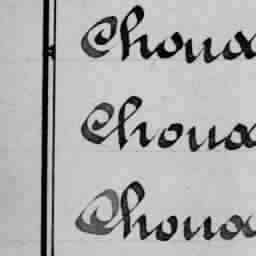 Choux
Choux
Choux